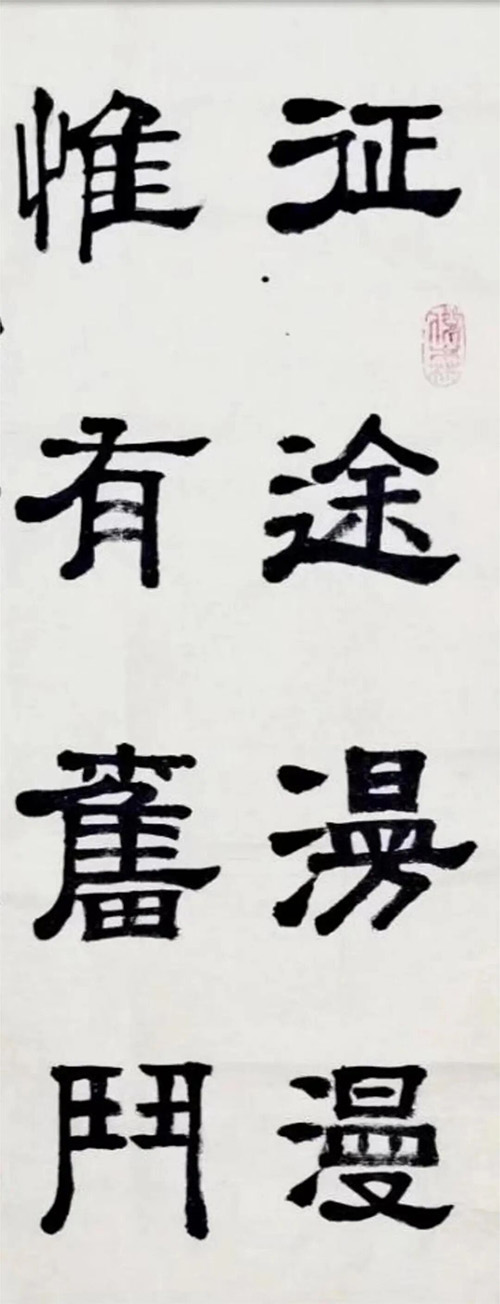 征途漫漫
惟有奮鬥